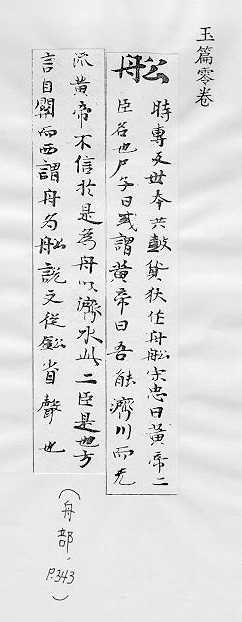 玉篇零卷
舩 時專反世本共鼓貨狄作舟舩宋忠曰黃帝二
臣名也尸子曰或謂黃帝曰吾能濟川而无
流黃帝不信於是為舟以濟水此二臣是也方
言自關而西謂舟為舩說文從鈆省聲也
(舟部, P.343)